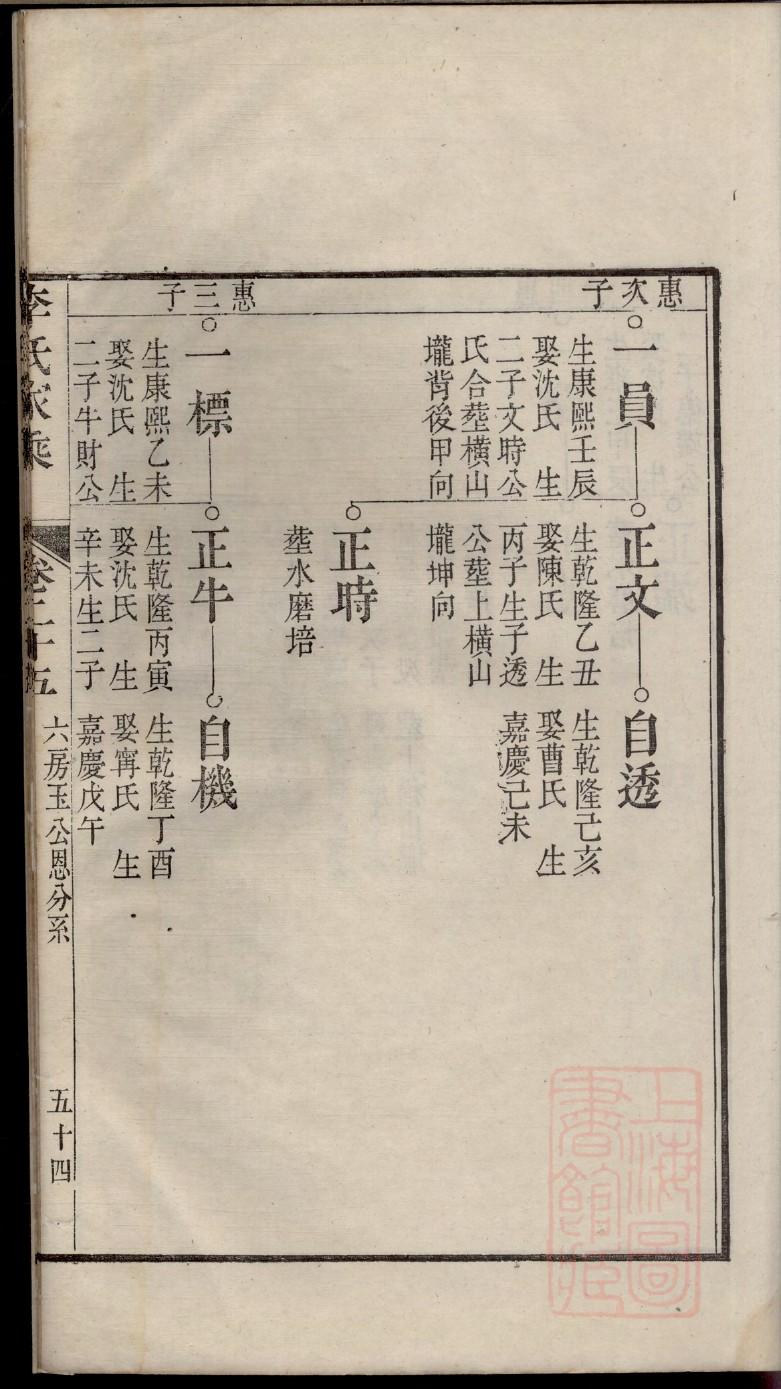 惠次子
一員
生康熙壬辰
娶沈氏 生
二子文時公
氏合塟橫山
壠背後甲向
正文
生乾隆乙丑
娶陳氏 生
丙子生子透
公塟上橫山
壠坤向
自透
生乾隆己亥
娶曹氏 生
嘉慶己未
正時
塟水磨培
惠三子
一標
生康熙乙未
娶沈氏 生
二子牛財公
正牛
生乾隆丙寅
娶沈氏 生
辛未生二子
自機
生乾隆丁酉
娶寗氏 生
嘉慶戊午
李氏家乘
卷二十五
六房玉公恩分系
五十四
上海圖
書館藏